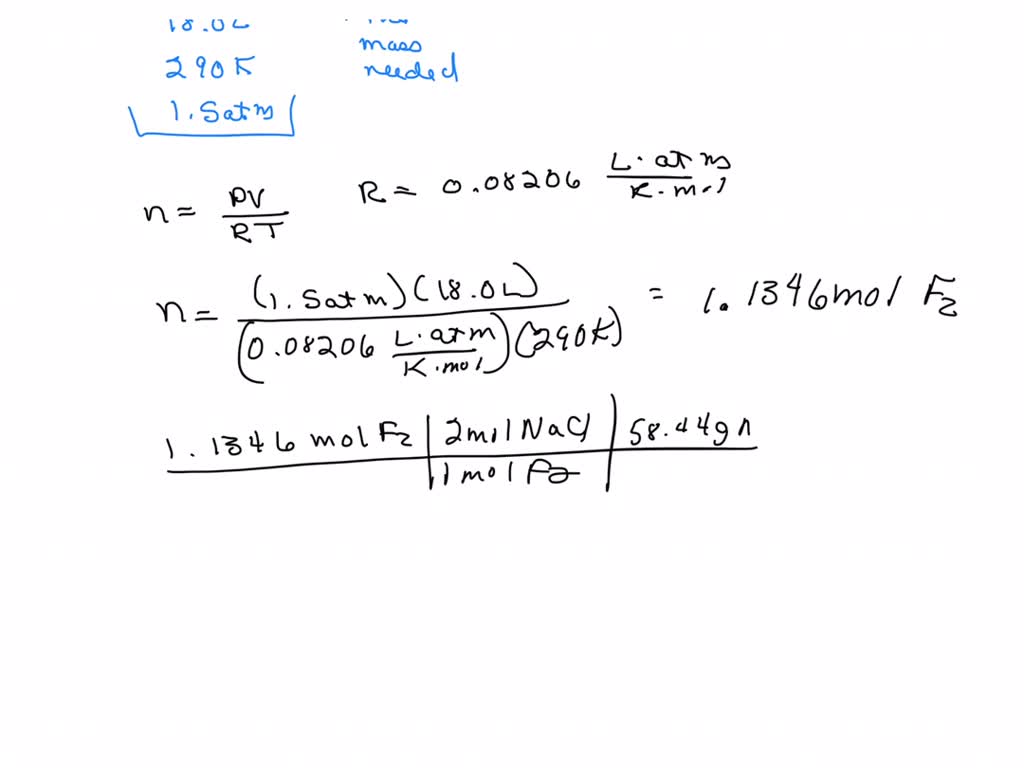 18.0L
mass
290K needed
1.5atm
n = PV / RT R = 0.08206 L·atm / K·mol
n = (1.5atm)(18.0L) / (0.08206 L·atm / K·mol)(290K) = 1.1346mol F2
1.1346 mol F2 | 2mol NaCl | 58.44g n
1 mol F2